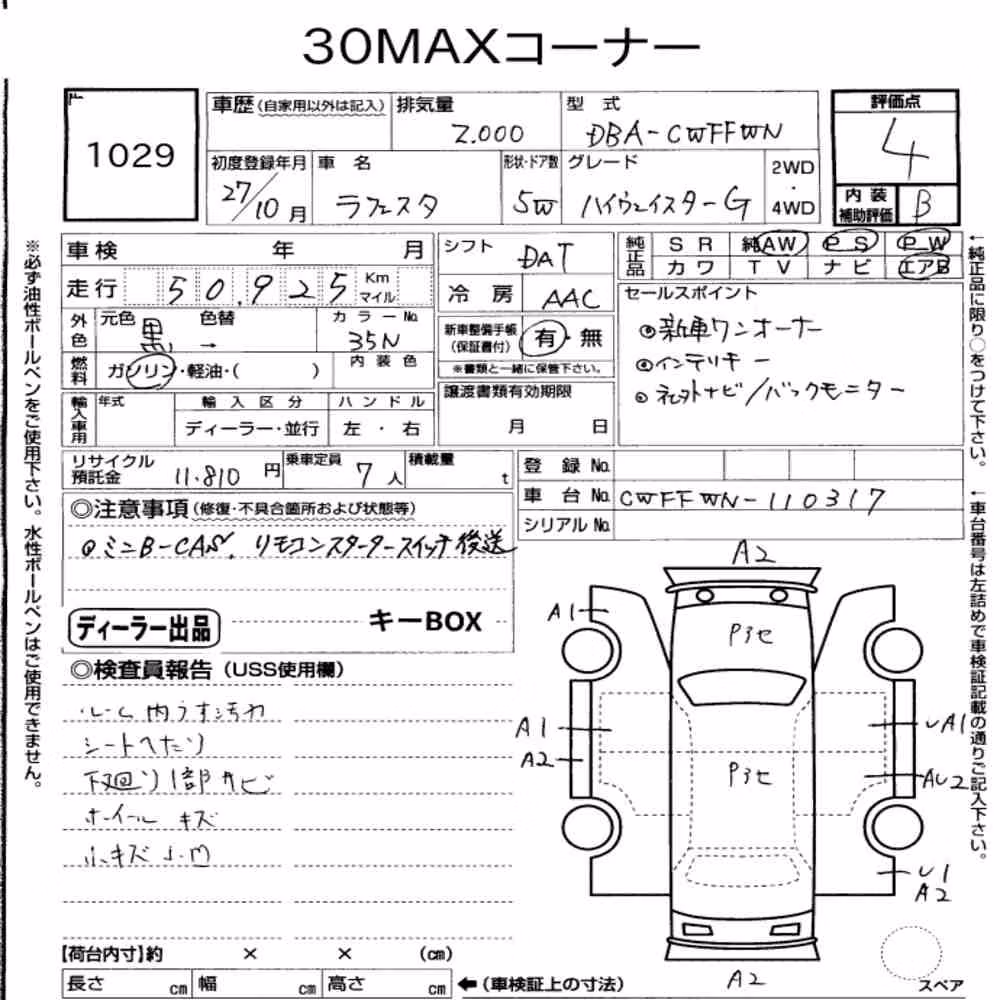 30MAXコーナー
1029
車歴 (自家用以外は記入) 排気量 2.000 型式 DBA-CWFFWN
評価点 4
初度登録年月 27/10月 車名 ラフェスタ 形状・ドア数 5W グレード ハイウェイスターG 2WD・4WD
内装補助評価 B
車検 年 月
走行 50.925 Km マイル
外色 元色 黒 色替 → カラーNo. 35N
燃料 ガソリン・軽油・( ) 内装色
輸入車用 年式 輸入区分 ディーラー・並行 ハンドル 左・右
シフト DAT
冷房 AAC
新車整備手帳 (保証書付) 有・無
※書類と一緒に保管下さい。
譲渡書類有効期限
月 日
純正品 SR 純AW PS PW
カワ TV ナビ エアB
セールスポイント
◎新車ワンオーナー
◎インテリキー
◎ /バックモニター
リサイクル預託金 11.810円 乗車定員 7人 積載量 t
登録No.
車台No. CWFFWN-110317
シリアルNo.
◎注意事項 (修復・不具合箇所および状態等)
◎ミニB-CAS、リモコンスタータースイッチ後送
ディーラー出品 キーBOX
◎検査員報告 (USS使用欄)
ルーム内うす汚れ
シートへたり
下廻り1部サビ
ホイールキズ
小キズ
【荷台内寸】約 × × (cm)
長さ cm 幅 cm 高さ cm ←(車検証上の寸法)
A2
A1
A1
A2
UA1
AU2
U1
A2
A2
スペア
※必ず油性ボールペンをご使用下さい。水性ボールペンはご使用できません。
←純正品に限り○をつけて下さい。
←車台番号は左詰めで車検証記載の通りご記入下さい。